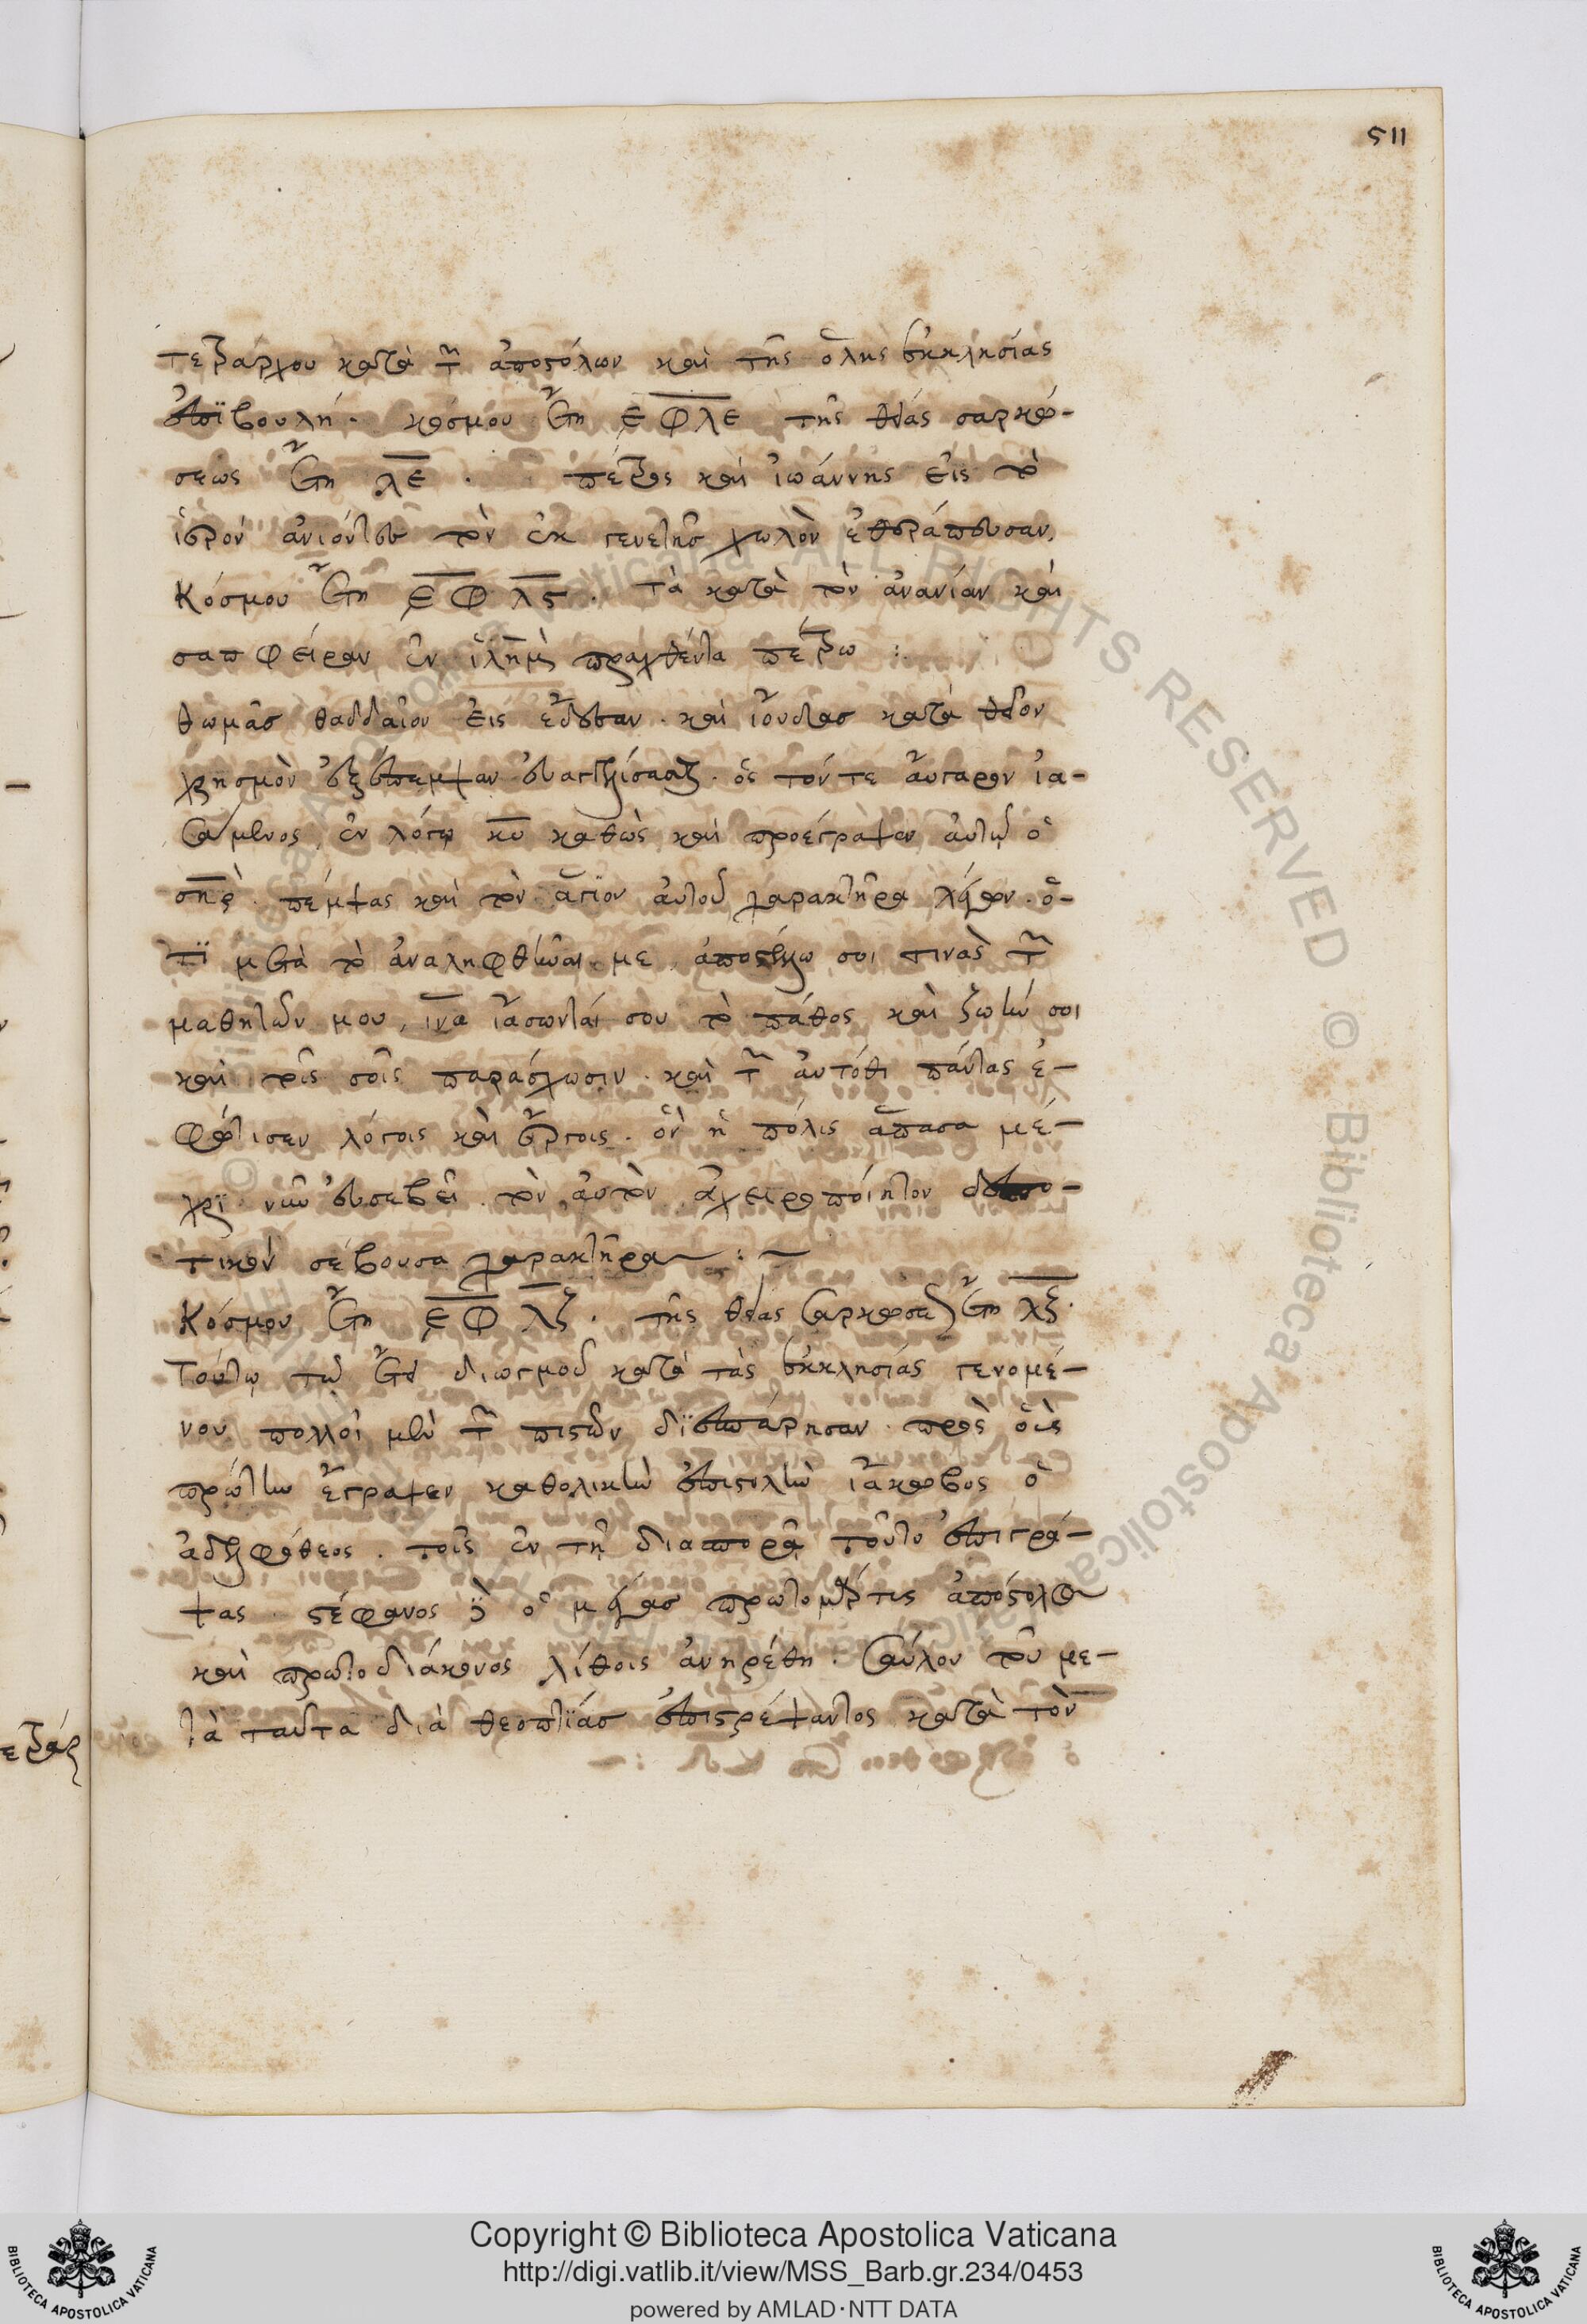 511
τετράρχου κατὰ τῶν ἀποστόλων καὶ τῆς ὅλης ἐκκλησίας
ἐπϊβουλή. κόσμου ἔτη ͵εφλε τῆς θείας σαρκώ-
σεως ἔτη λε. πέτρος καὶ ἰωάννης εἰς τὸ
ἱερὸν ἀνιόντες τὸν ἐκ γενετῆς χωλὸν ἐθεράπευσαν.
Κόσμου ἔτη ͵εφλϛ. τὰ κατὰ τὸν ἀνανίαν καὶ
σαπφείραν ἐν ἱλημ̀ πραχθέντα πέτρω :
θωμᾶς θαδδαῖον εἰς ἔδεσαν. καὶ ἰούδας κατὰ θεῖον
χρησμὸν ἐξέπεμψαν εὐαγγελίσασθαι. ὃς τόν τε αὔγαρον ἰα-
σάμενος ἐν λόγω κυ καθὼς καὶ προέγραψεν αὐτῶ ὁ
σηρ̀. πέμψας καὶ τὸν ἅγϊον αὐτοῦ χαρακτῆρα λέγων. ὅ-
τϊ μετὰ τὸ ἀναληφθῆναι με ἀποστέλλω σοι τινὰς τῶν
μαθητῶν μου, ἵνα ἰάσωνταί σου τὸ πάθος καὶ ζωήν σοι
καὶ τοῖς σοῖς παράσχωσιν. καὶ τοὺς αὐτόθι πάντας ἐ-
φώτισεν λόγοις καὶ ἔργοις. ὃν ἡ πόλις ἅπασα μέ-
χρϊ νῦν εὐσεβεῖ τὸν αὐτὸν ἀχειροποίητον δεσπο-
τικὸν σέβουσα χαρακτῆρα : ~
Κόσμου ἔτη ͵εφλζ. τῆς θείας σαρκώσεως ἔτη λζ.
Τούτω τῶ ἔτει διωγμοῦ κατὰ τὰς ἐκκλησίας γενομέ-
νου πολλοὶ μὲν τῶν πιστῶν δϊεσπάρησαν. πρὸς οὓς
πρώτην ἔγραψεν καθολικὴν ἐπιστολὴν ἰάκωβος ὁ
ἀδελφόθεος. τοῖς ἐν τῆ διασπορᾶ τοῦτο ἐπιγρά-
ψας. στέφανος δὲ ὁ μέγας πρωτομάρτυς ἀπόστολος
καὶ πρωτοδιάκονος λίθοις ἀνηρέθη. σαύλου τοῦ με-
τὰ ταῦτα διὰ θεοπτίας ἐπιστρέψαντος κατὰ τὸν
Copyright © Biblioteca Apostolica Vaticana
http://digi.vatlib.it/view/MSS_Barb.gr.234/0453
powered by AMLAD·NTT DATA